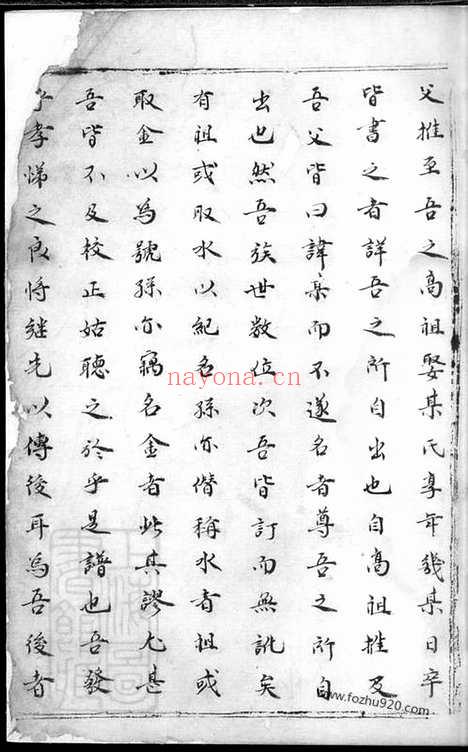 父推至吾之高祖娶某氏享年幾某日卒
皆書之者詳吾之所自出也自高祖推及
吾父皆曰諱某而不遂名者尊吾之所自
出也然吾族世數位次吾皆訂而無訛矣
有祖或取水以紀名孫亦僭稱水者祖或
取金以為號孫亦竊名金者此其謬尤甚
吾皆不及校正姑聽之於乎是譜也吾發
孝悌之良將繼先以傳後耳為吾後者
nayona.cn
www.fozhu920.com